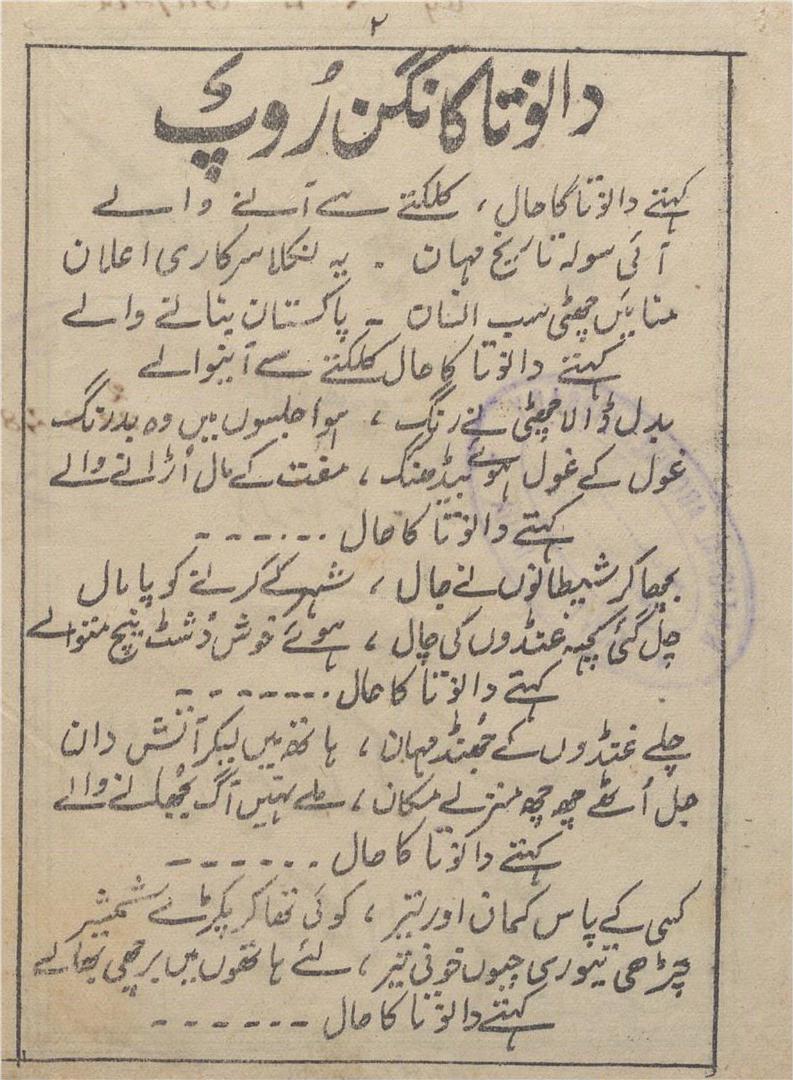 ۲
دانوتا کا نگن رُوپ
کہتے دانوتا کا حال ، کلکتے سے آنے والے
آئی سولہ تاریخ مہان ۔ یہ نکلا سرکاری اعلان
منائیں چھٹی سب انسان ۔ پاکستان بنانے والے
کہتے دانوتا کا حال کلکتے سے آنیوالے
بدل ڈالا چھٹی نے رنگ ، ہوا جلسوں میں وہ بدرنگ
غول کے غول ہوئے بیڈھنگ ، مفت کے مال اُڑانے والے
کہتے دانوتا کا حال ۔۔۔۔۔۔
بچھا کر شیطانوں نے جال ، شہر کے کرنے کو پامال
چل گئی کچھ غنڈوں کی چال ، ہوئے خوش دُشٹ نیچ متوالے
کہتے دانوتا کا حال ۔۔۔۔۔۔۔
چلے غنڈوں کے جُھنڈ مہان ، ہاتھ میں لیکر آتش دان
جل اُٹھے چھ چھ منزلے مکان ، ملے نہیں آگ بُجھانے والے
کہتے دانوتا کا حال ۔۔۔۔۔۔
کسی کے پاس کمان اور تیر ، کوئی تھا کر پکڑے شمشیر
چڑھی تیوری جیوں خونی تیر ، لئے ہاتھوں میں برچھی بھالے
کہتے دانوتا کا حال ۔۔۔۔۔۔